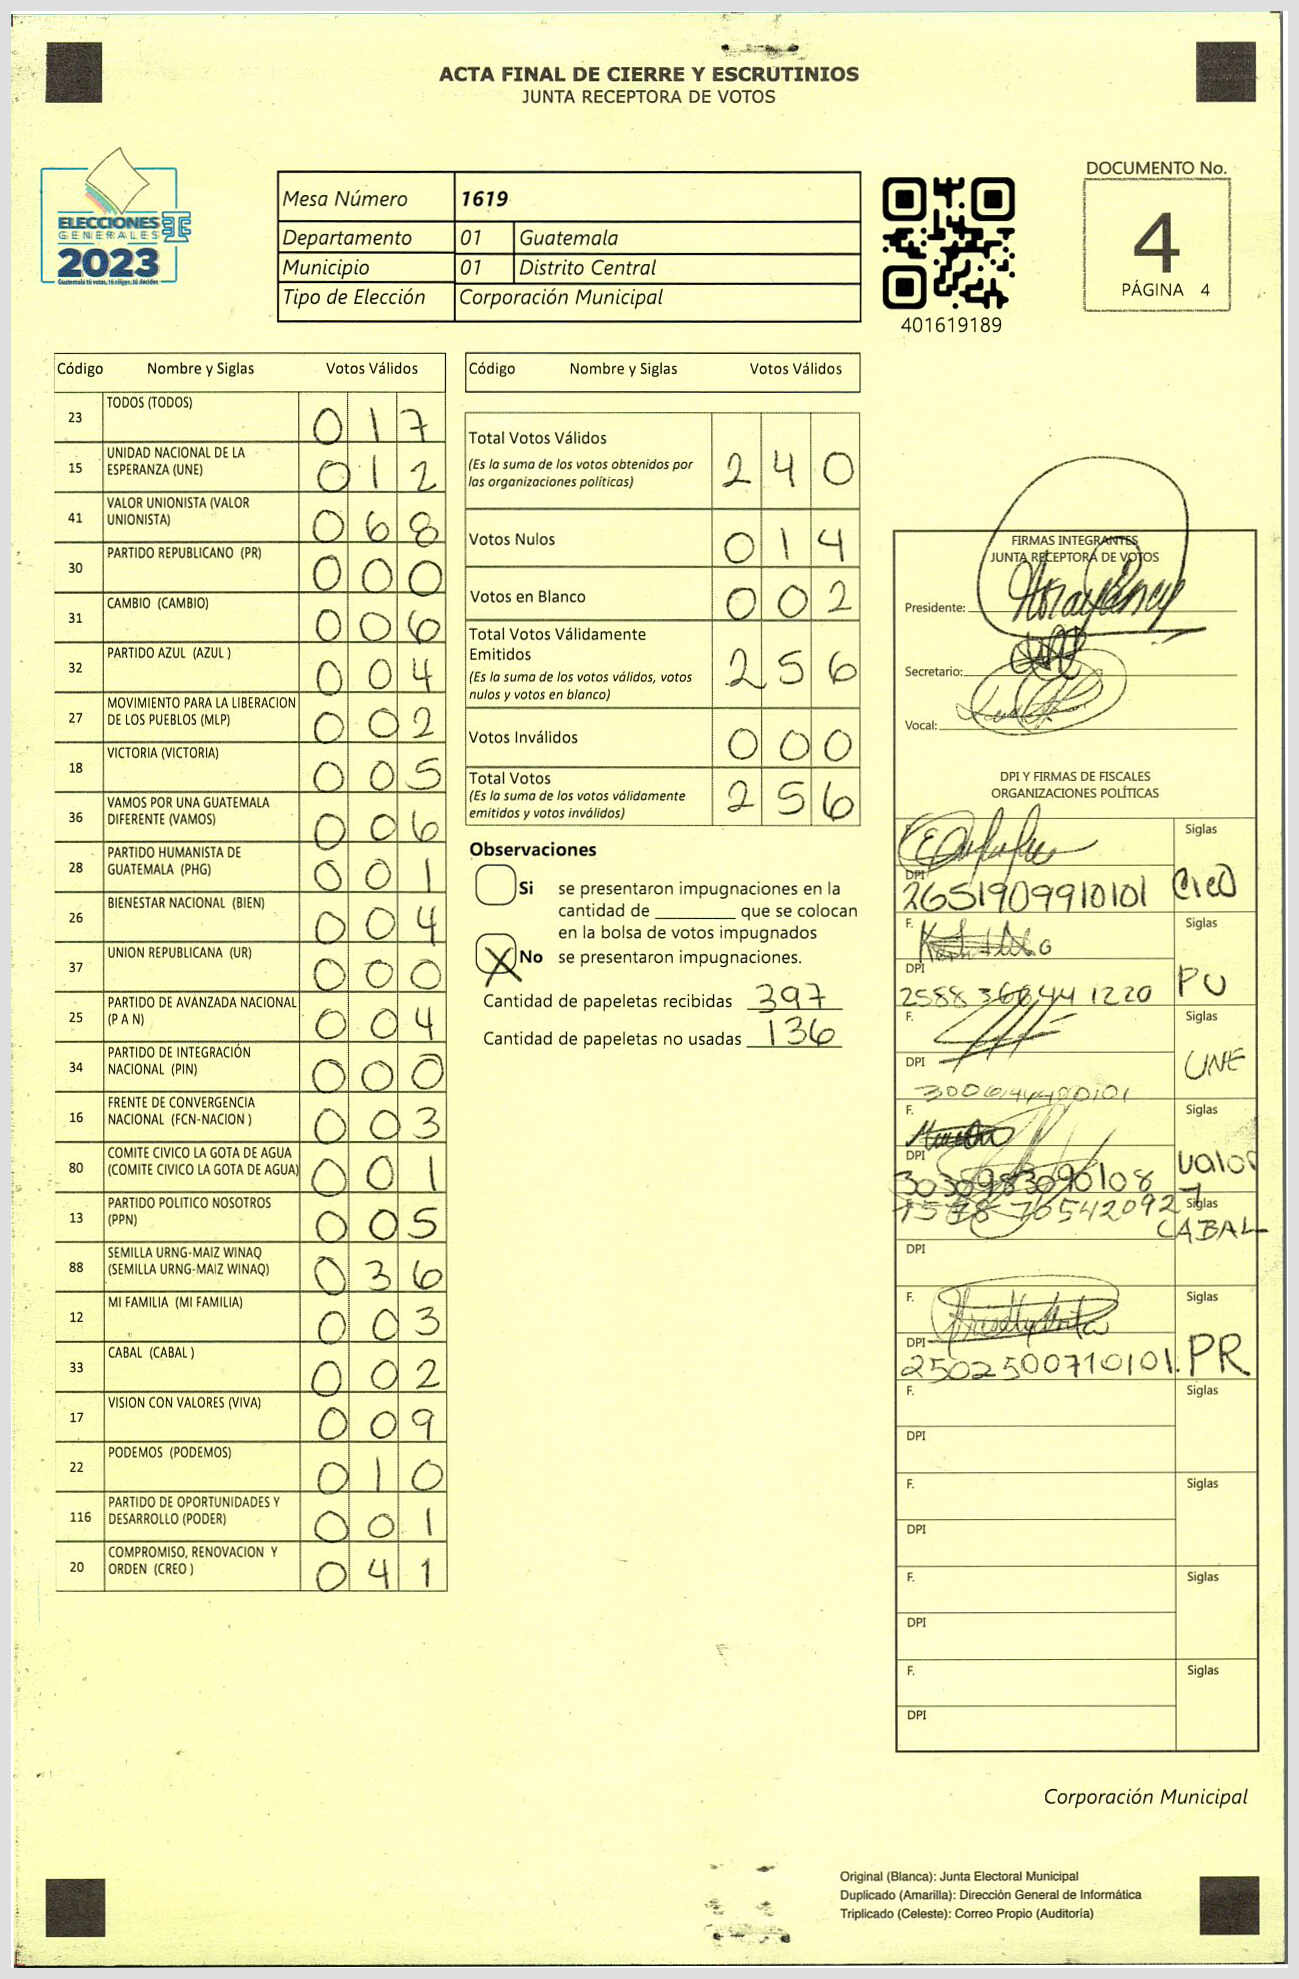 ACTA FINAL DE CIERRE Y ESCRUTINIOS
JUNTA RECEPTORA DE VOTOS
ELECCIONES
GENERALES
2023
Guatemala tú votas, tú eliges, tú decides
Mesa Número 1619
Departamento 01 Guatemala
Municipio 01 Distrito Central
Tipo de Elección Corporación Municipal
401619189
DOCUMENTO No.
4
PÁGINA 4
Código Nombre y Siglas Votos Válidos
23 TODOS (TODOS) 017
15 UNIDAD NACIONAL DE LA ESPERANZA (UNE) 012
41 VALOR UNIONISTA (VALOR UNIONISTA) 068
30 PARTIDO REPUBLICANO (PR) 000
31 CAMBIO (CAMBIO) 006
32 PARTIDO AZUL (AZUL ) 004
27 MOVIMIENTO PARA LA LIBERACION DE LOS PUEBLOS (MLP) 002
18 VICTORIA (VICTORIA) 005
36 VAMOS POR UNA GUATEMALA DIFERENTE (VAMOS) 006
28 PARTIDO HUMANISTA DE GUATEMALA (PHG) 001
26 BIENESTAR NACIONAL (BIEN) 004
37 UNION REPUBLICANA (UR) 000
25 PARTIDO DE AVANZADA NACIONAL (P A N) 004
34 PARTIDO DE INTEGRACIÓN NACIONAL (PIN) 000
16 FRENTE DE CONVERGENCIA NACIONAL (FCN-NACION ) 003
80 COMITE CIVICO LA GOTA DE AGUA (COMITE CIVICO LA GOTA DE AGUA) 001
13 PARTIDO POLITICO NOSOTROS (PPN) 005
88 SEMILLA URNG-MAIZ WINAQ (SEMILLA URNG-MAIZ WINAQ) 036
12 MI FAMILIA (MI FAMILIA) 003
33 CABAL (CABAL ) 002
17 VISION CON VALORES (VIVA) 009
22 PODEMOS (PODEMOS) 010
116 PARTIDO DE OPORTUNIDADES Y DESARROLLO (PODER) 001
20 COMPROMISO, RENOVACION Y ORDEN (CREO ) 041
Código Nombre y Siglas Votos Válidos
Total Votos Válidos 240
(Es la suma de los votos obtenidos por
las organizaciones políticas)
Votos Nulos 014
Votos en Blanco 002
Total Votos Válidamente
Emitidos 256
(Es la suma de los votos válidos, votos
nulos y votos en blanco)
Votos Inválidos 000
Total Votos 256
(Es la suma de los votos válidamente
emitidos y votos inválidos)
Observaciones
Si se presentaron impugnaciones en la
cantidad de ________ que se colocan
en la bolsa de votos impugnados
X No se presentaron impugnaciones.
Cantidad de papeletas recibidas 397
Cantidad de papeletas no usadas 136
FIRMAS INTEGRANTES
JUNTA RECEPTORA DE VOTOS
Presidente:
Secretario:
Vocal:
DPI Y FIRMAS DE FISCALES
ORGANIZACIONES POLÍTICAS
F. Siglas
DPI 2651909910101
F. Siglas
DPI PU
F. Siglas
DPI UNE
F. Siglas
DPI Valor
Siglas
CABAL
DPI
F. Siglas
DPI 2502500710101. PR
F. Siglas
DPI
F. Siglas
DPI
F. Siglas
DPI
F. Siglas
DPI
Corporación Municipal
Original (Blanca): Junta Electoral Municipal
Duplicado (Amarilla): Dirección General de Informática
Triplicado (Celeste): Correo Propio (Auditoría)